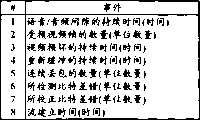 # 事件
1 语音/音频间隙的持续时间(时间)
2 受损视频帧的数量(单位数量)
3 视频损坏的持续时间(时间)
4 重新缓冲的持续时间(时间)
5 连续丢包的数量(单位数量)
6 所检测比特差错(单位数量)
7 所校正比特差错(单位数量)
8 流建立时间(时间)